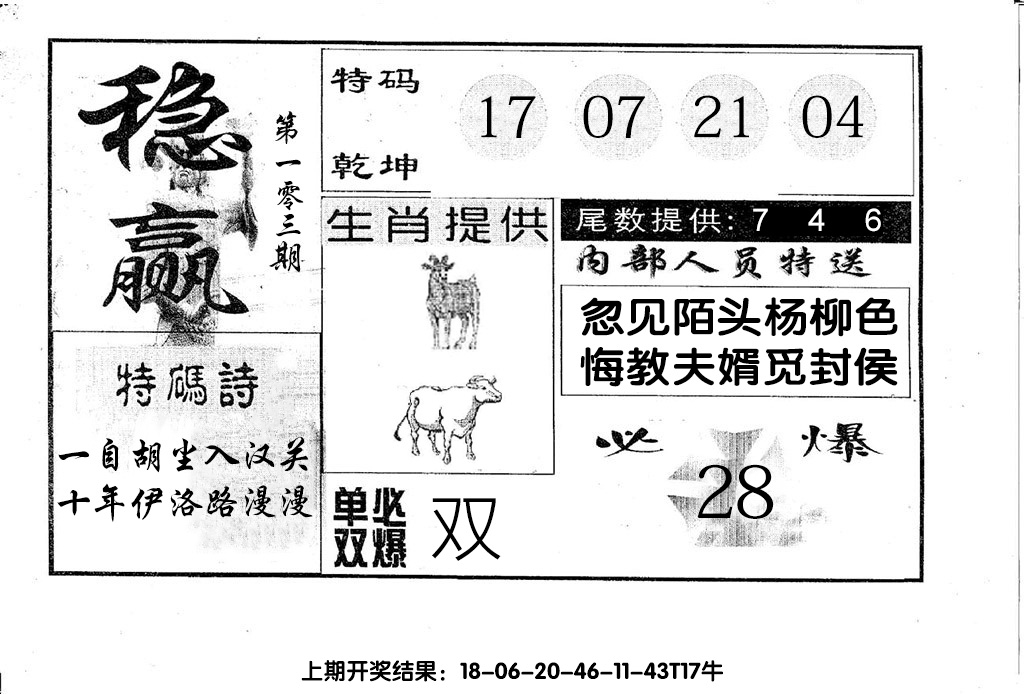 稳赢
第一零三期
特码诗
一自胡尘入汉关
十年伊洛路漫漫
特码
乾坤
17 07 21 04
生肖提供
单双
必爆
双
尾数提供: 7 4 6
内部人员特送
忽见陌头杨柳色
悔教夫婿觅封侯
必爆
28
上期开奖结果：18-06-20-46-11-43T17牛